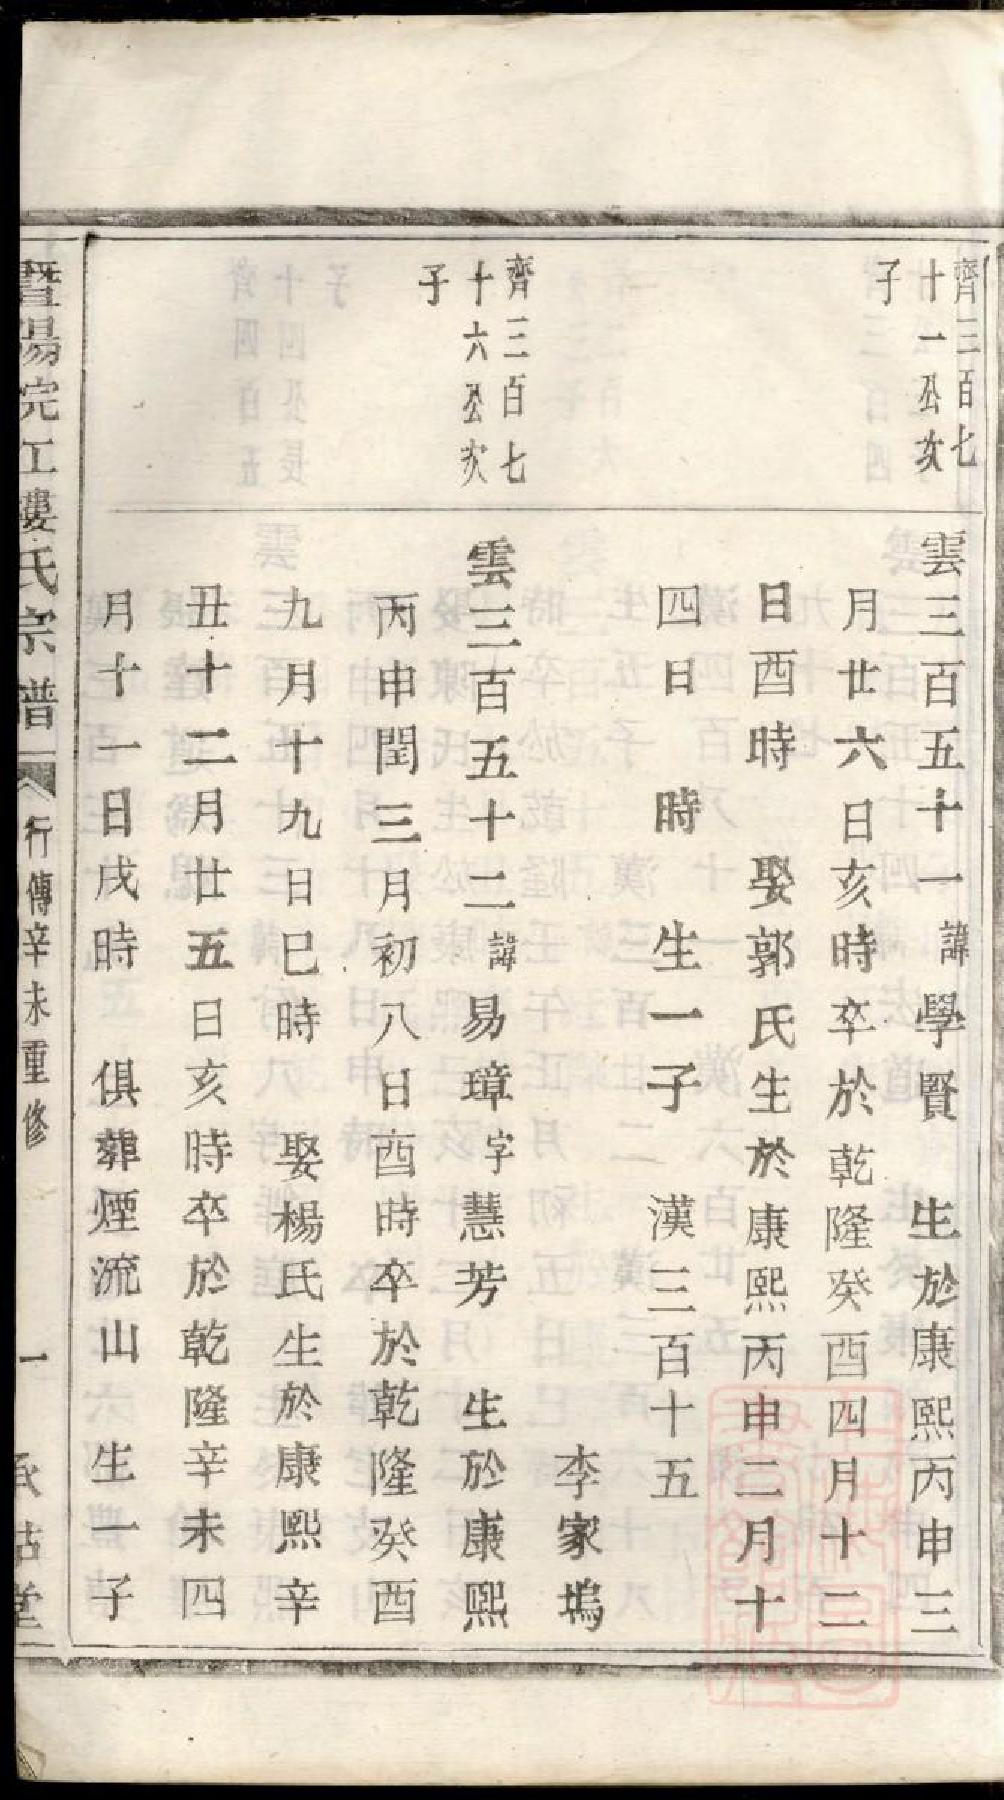 齊三百七
十一公次
子
雲三百五十一諱學賢　生於康熙丙申三
月廿六日亥時卒於乾隆癸酉四月十二
日酉時　娶郭氏生於康熙丙申二月十
四日　時　生一子　漢三百十五
李家塢
齊三百七
十六公次
子
雲三百五十二諱易璋字慧芳　生於康熙
丙申閏三月初八日酉時卒於乾隆癸酉
九月十九日巳時　娶楊氏生於康熙辛
丑十二月廿五日亥時卒於乾隆辛未四
月十一日戌時　俱葬煙流山　生一子
暨陽浣工婁氏宗譜
行傳辛未重修
一